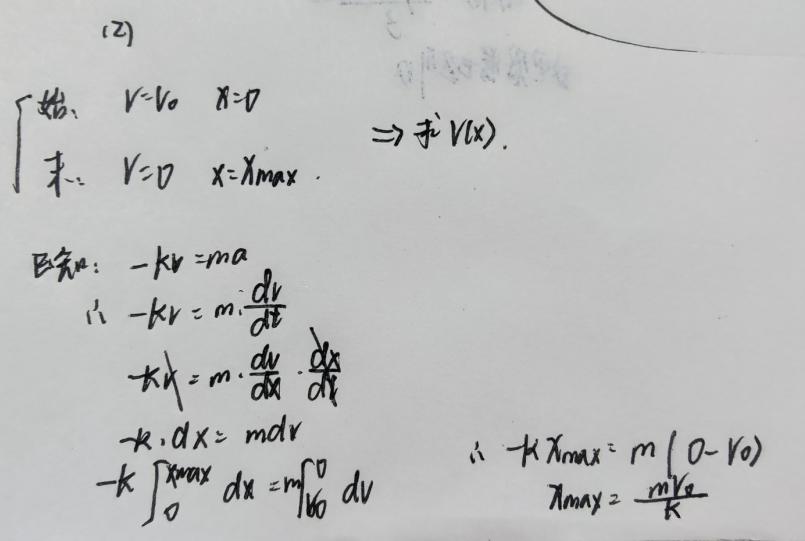 (2)
始: v=v₀ x=0
末: v=0 x=xmax.
⇒ 求 v(x).
已知: -kv=ma
∴ -kv=m·dv/dt
-kv=m·dv/dx·dx/dt
-k·dx=mdv
-k∫₀^xmax dx=m∫_v₀^0 dv
∴ -kxmax=m(0-v₀)
xmax=mv₀/k